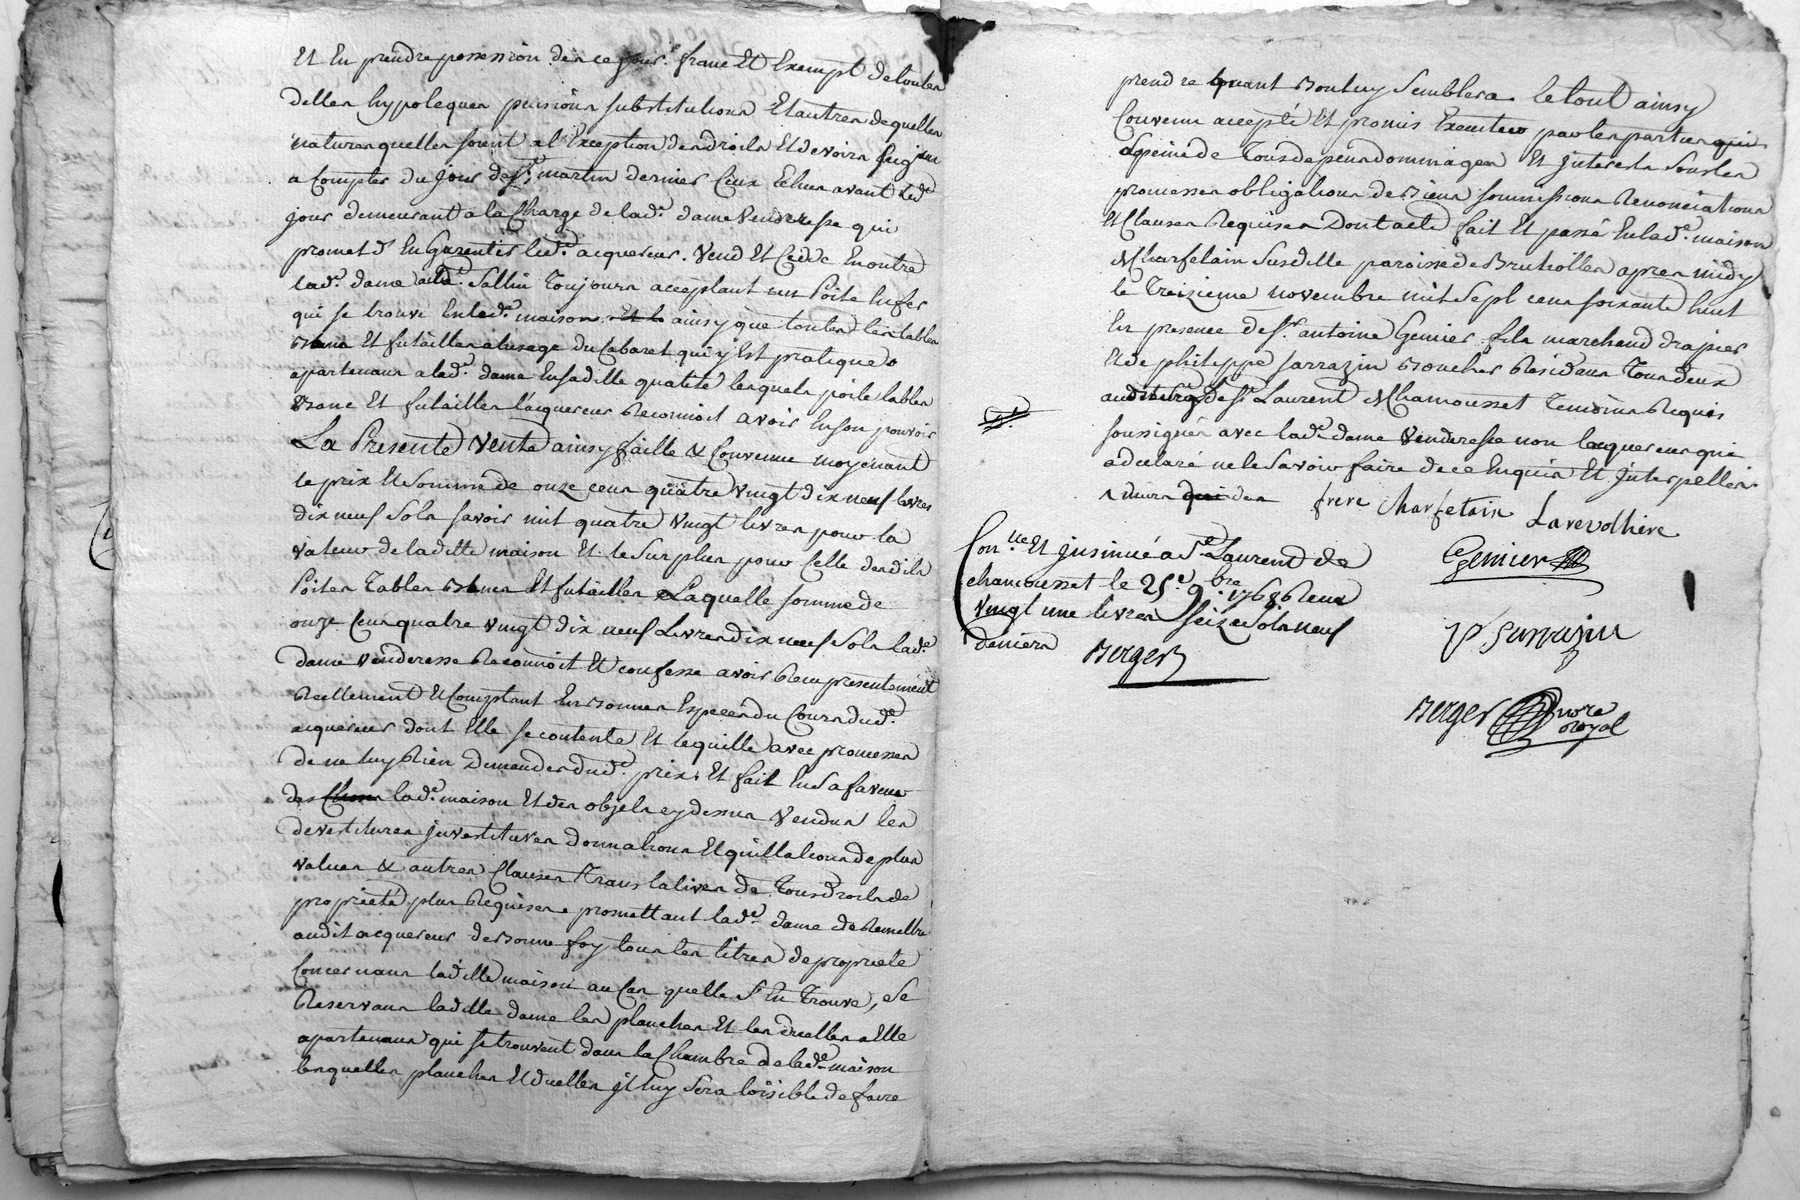 Et En prendre possession des ce jour franc Et Exempt de toutes
dettes hypoteques pensions substitutions Et autres de quelles
natures quelles soient a l'Exception des droits Et devoirs seig.aux
a Compter du jour de S.t martin dernier Ceux Echus avant led.
jour demeurant a la Charge de lad.e dame Venderesse qui
promet d'En Garentir led.t acquereur. Vend Et Cedde En outre
lad.e dame aud. Sallin Toujours acceptant un Poile En fer
qui se trouve En lad.e maison Et le ainsy que toutes les tables
Bancs Et futailles a l'usage du Cabaret qui y Est pratiqué
apartenans a lad.e dame En saditte qualité lesquels poile tables
Banc Et futailles l'acquereur Reconnoit avoir En son pouvoir
La Presente Vente ainsy faitte & Convenue moyenant
le prix Et Somme de onze cens quatre vingt dix neuf livres
dix neuf Sols savoir mil quatre vingt livres pour la
valeur de laditte maison Et le Surplus pour Celle desdits
Poiles Tables Bancs Et futailles Laquelle somme de
onze Cens quatre vingt dix neuf Livres dix neuf Sols lad.e
dame Venderesse Reconnoit Et confesse avoir Reçu presentement
Reellement Et Comptant En Bonnes Especes du Cours dud.
acquereur dont Elle se contente Et le quitte avec promesses
de ne luy Rien Demander dud. prix, Et fait En Sa faveur
des Choses lad.e maison Et des objets cy dessus Vendus les
devestitures jnvestitures donnations Et quittations de plus
values & autres Clauses Translatives de Tous droits de
proprieté plus Requises promettant lad.e dame de Remettre
audit acquereur de Bonne foy tous les titres de proprieté
Concernans laditte maison au Cas quelle s'En Trouve, Se
Reservans laditte dame les planches Et les duelles a Elle
apartenans qui se trouvent dans la Chambre de lad.e maison
lesquelles planches Et duelles jl luy Sera loisible de faire
prendre quant Bon luy Semblera. le tout ainsy
Convenu accepté Et promis Executer par les parties qui
a peine de Tous depens dommages Et jnterets Sous les
promesses obligations de Biens soumissions Renonciations
Et Clauses Requises Dont acte fait Et passé En lad.e maison
Charfetain Susditte paroisse de Brulliolles apres midy
le Treizieme novembre mil Sept cens soixante huit
En presence de S.r antoine Genier fils marchand drapier
Et de philippe sarrazin Boucher Residans Tous deux
audit Bourg de S.t Laurent de Chamousset Temoins Requis
soussignés avec lad.e dame Venderesse non l'acquereur qui
a declaré ne le Savoir faire de ce Enquis Et jnterpellé.
frere Charfetain Laverolhiere
Con.lle Et jnsinué a S.t Laurent de
chamousset le 25.e 9.bre 1768 Reçu
Vingt une livres seize Sols neuf
deniers Berger
Genier
P Sarrazin
Berger no.re
Royal